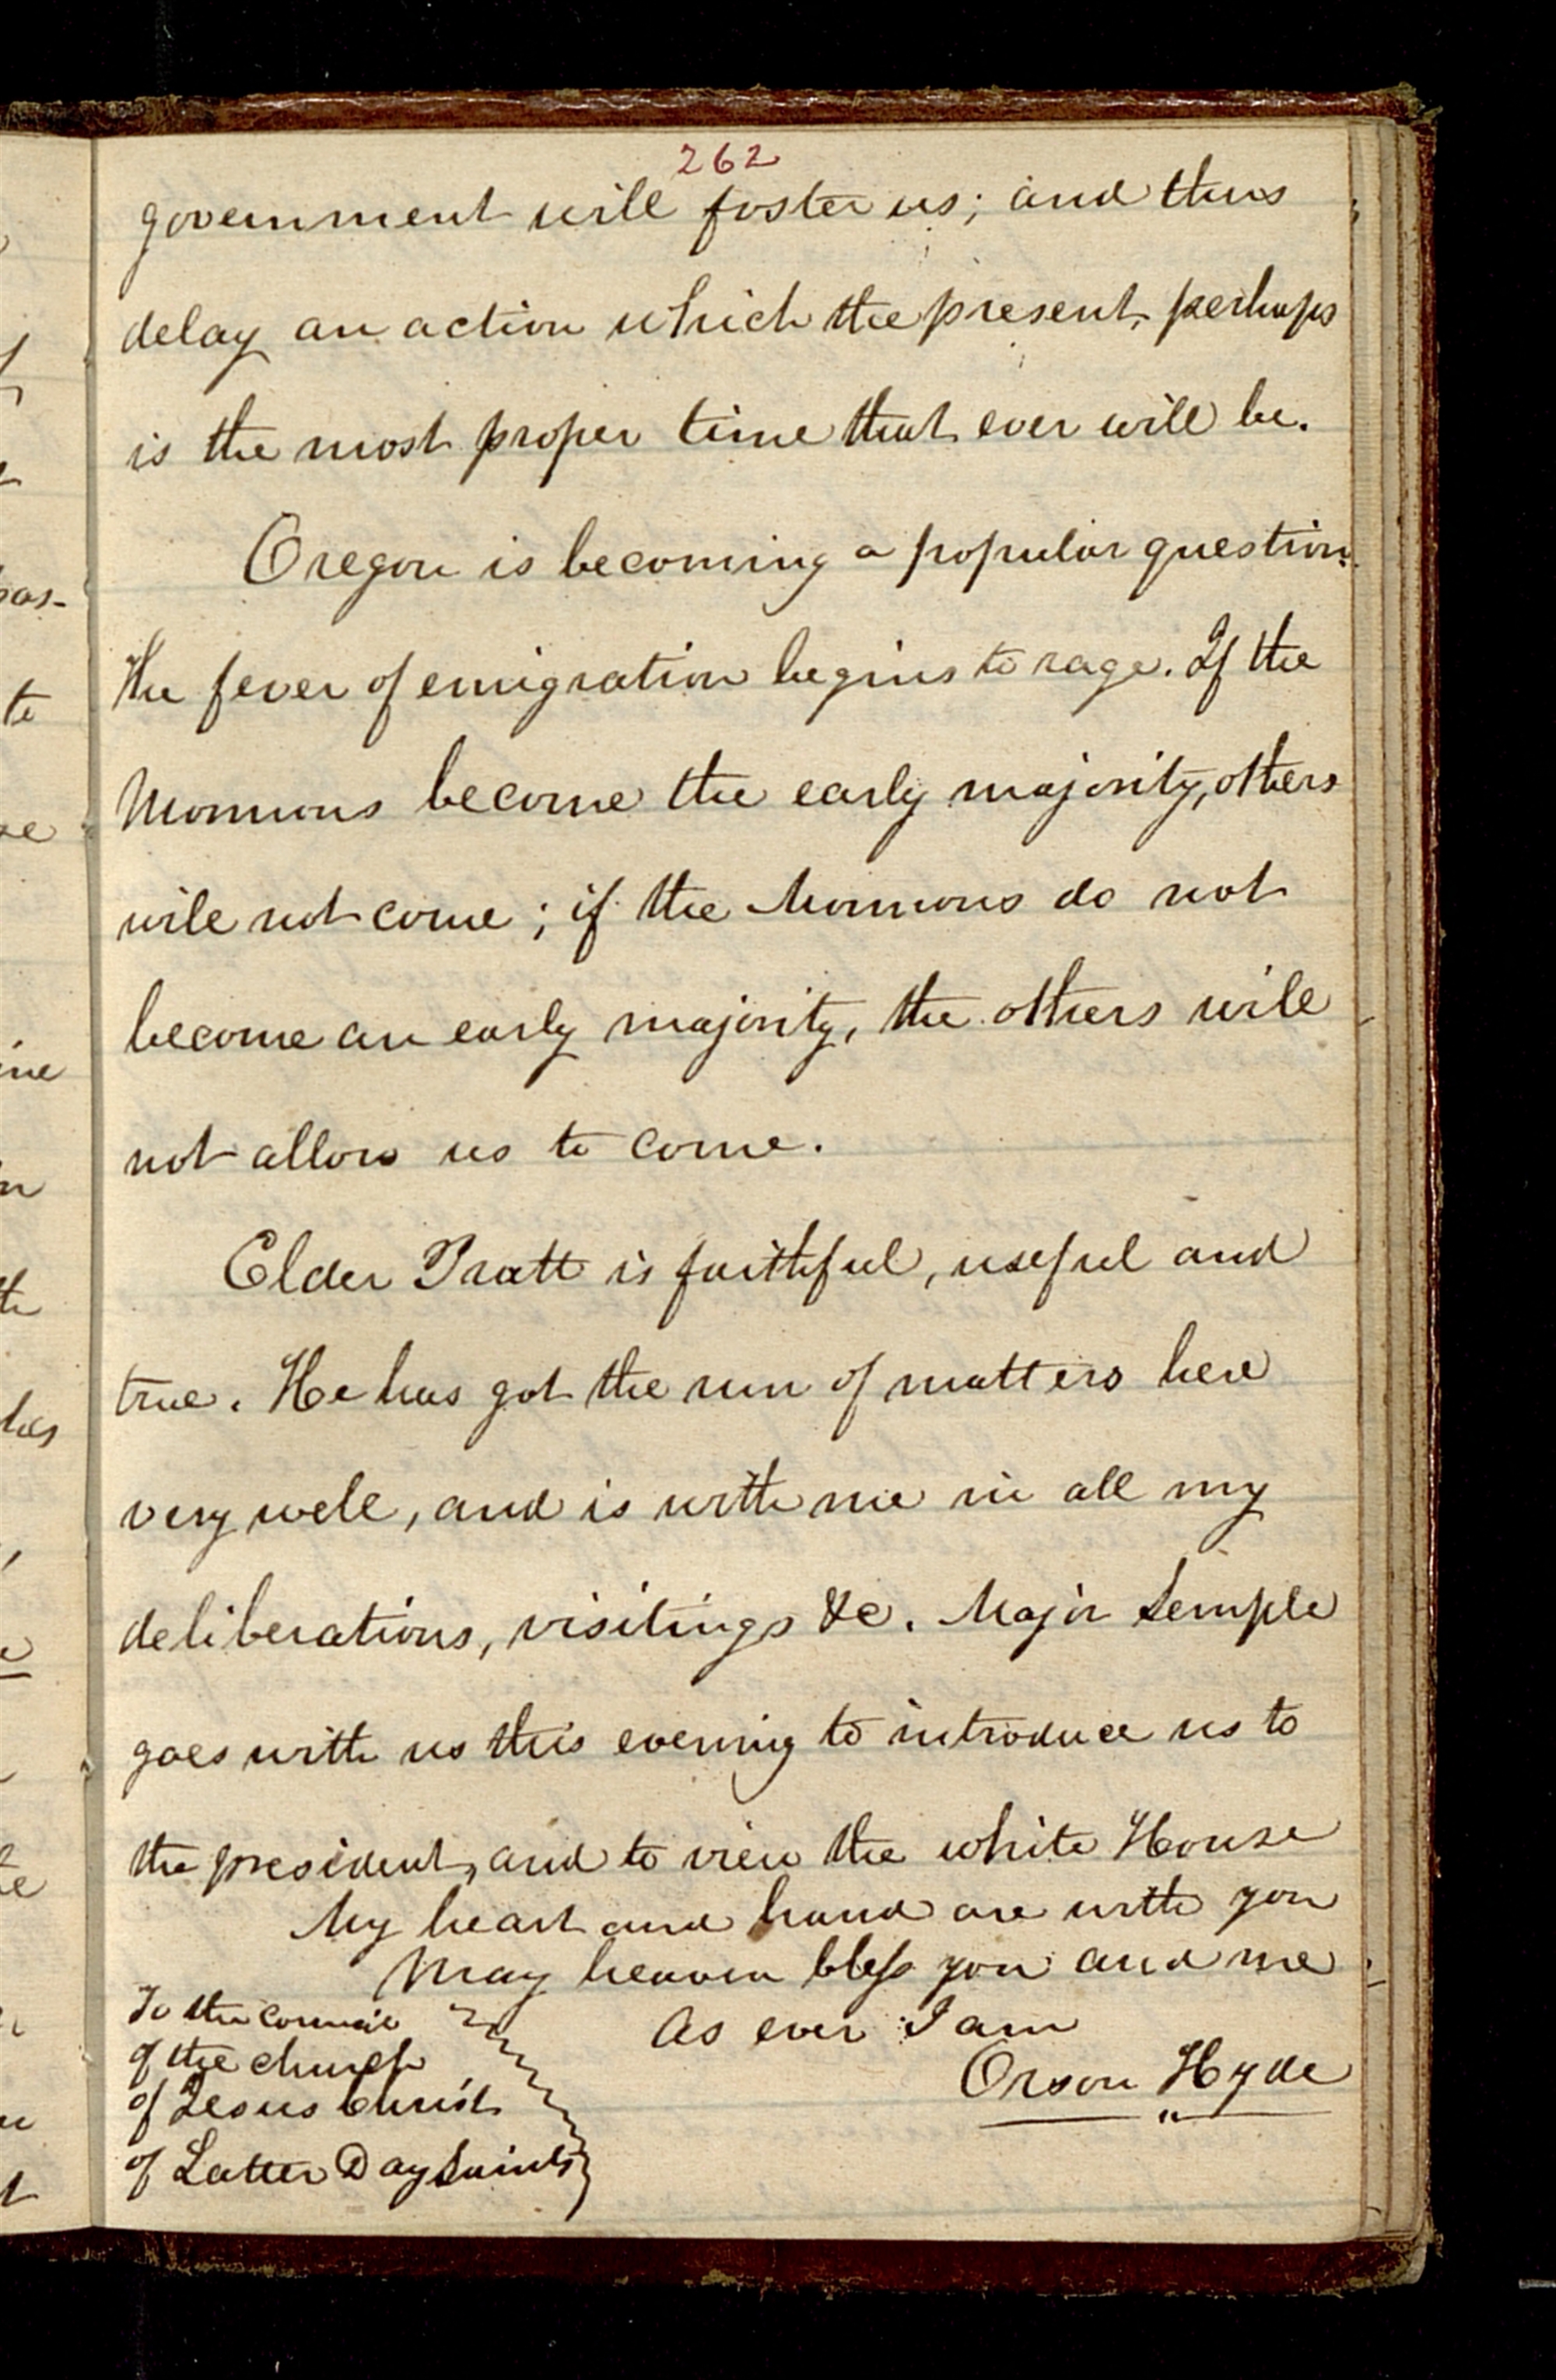 262
government will foster us; and thus
delay an action which the present, perhaps
is the most proper time that ever will be.
Oregon is becoming a popular question.
The fever of emigration begins to rage. If the
Mormons become the early majority, others
will not come; if the Mormons do not
become an early majority, the others will
not allow us to come.
Elder Pratt is faithful, useful and
true. He has got the run of matters here
very well, and is with me in all my
deliberations, visitings &c. Major Semple
goes with us this evening to introduce us to
the president, and to view the white House
My heart and hand are with you
May heaven bless you and me
As ever I am
Orson Hyde
To the council
of the church
of Jesus Christ
of Latter Day Saints